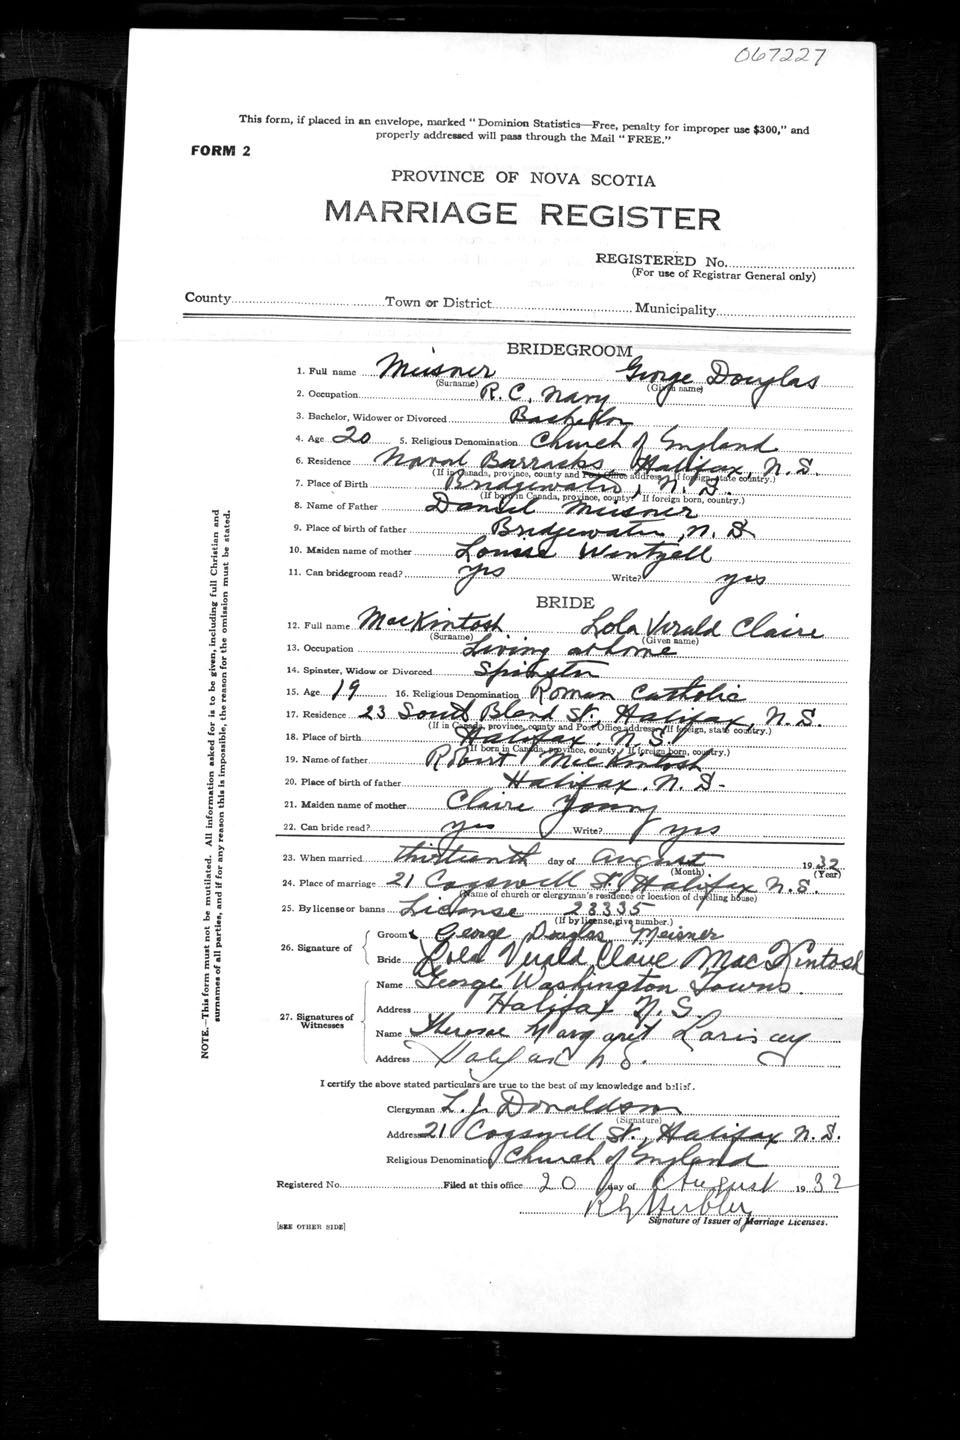 067227
This form, if placed in an envelope, marked "Dominion Statistics—Free, penalty for improper use $300," and
properly addressed will pass through the Mail "FREE."
FORM 2
PROVINCE OF NOVA SCOTIA
MARRIAGE REGISTER
REGISTERED No.
(For use of Registrar General only)
County Town or District Municipality
BRIDEGROOM
1. Full name Meisner George Douglas
(Surname) (Given name)
2. Occupation R. C. Navy
3. Bachelor, Widower or Divorced Bachelor
4. Age 20 5. Religious Denomination Church of England
6. Residence Naval Barracks, Halifax, N. S.
(If in Canada, province, county and Post Office address. If foreign, state country.)
7. Place of Birth Bridgewater, N. S.
(If born in Canada, province, county. If foreign born, country.)
8. Name of Father Daniel Meisner
9. Place of birth of father Bridgewater, N. S.
10. Maiden name of mother Louise Wentzell
11. Can bridegroom read? yes Write? yes
BRIDE
12. Full name MacKintosh Lola Verald Claire
(Surname) (Given name)
13. Occupation Living at home
14. Spinster, Widow or Divorced Spinster
15. Age 19 16. Religious Denomination Roman Catholic
17. Residence 23 South Bland St, Halifax, N. S.
(If in Canada, province, county and Post Office address. If foreign, state country.)
18. Place of birth Halifax, N. S.
(If born in Canada, province, county. If foreign born, country.)
19. Name of father Robert MacKintosh
20. Place of birth of father Halifax, N. S.
21. Maiden name of mother Claire Young
22. Can bride read? yes Write? yes
23. When married thirteenth day of August 1932
(Month) (Year)
24. Place of marriage 21 Cogswell St, Halifax N. S.
(Name of church or clergyman's residence or location of dwelling house)
25. By license or banns License 23335
(If by license, give number.)
26. Signature of
Groom George Douglas Meisner
Bride Lola Verald Claire MacKintosh
27. Signatures of Witnesses
Name George Washington Towns
Address Halifax N. S.
Name Therese Margaret Lariscey
Address Halifax N S.
I certify the above stated particulars are true to the best of my knowledge and belief.
Clergyman L. J. Donaldson
(Signature)
Address 21 Cogswell St., Halifax N. S.
Religious Denomination Church of England
Registered No. Filed at this office 20 day of August 1932
Signature of Issuer of Marriage Licenses.
[SEE OTHER SIDE]
NOTE.—This form must not be mutilated. All information asked for is to be given, including full Christian and
surnames of all parties, and if for any reason this is impossible, the reason for the omission must be stated.